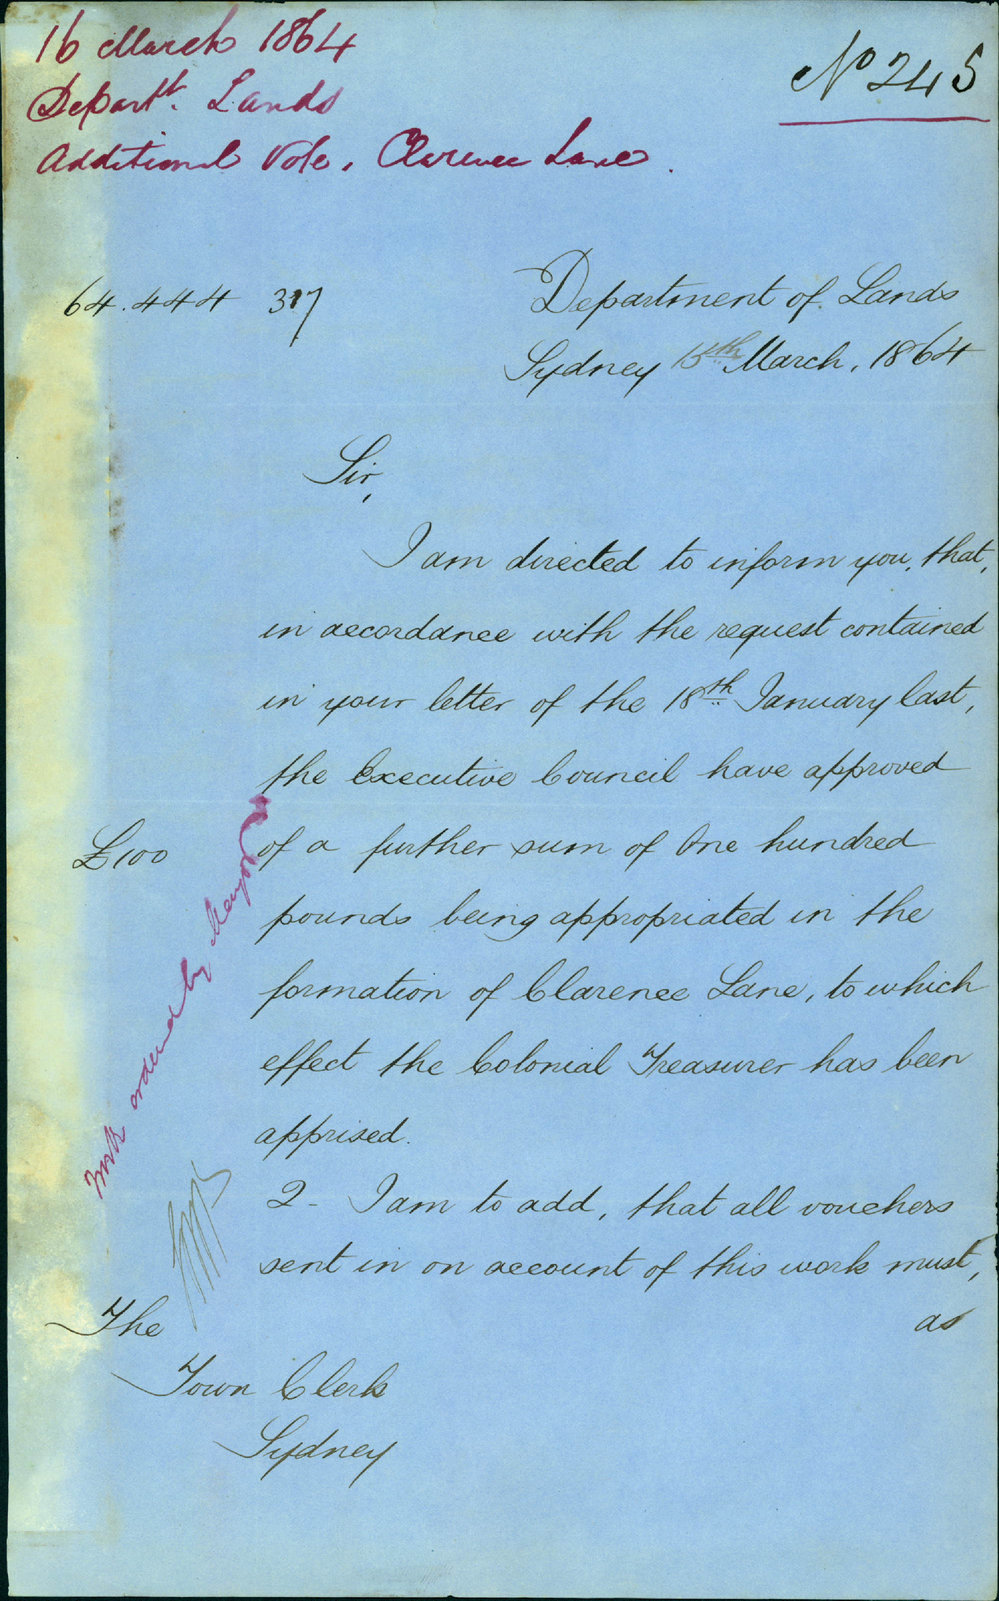 16 March 1864
Departt. Lands
Additional Vote, Clarence Lane.
No 245
64.444 317
Department of Lands
Sydney 15th March, 1864
Sir,
I am directed to inform you, that,
in accordance with the request contained
in your letter of the 18th January last,
the Executive Council have approved
£100
of a further sum of One hundred
pounds being appropriated in the
formation of Clarence Lane, to which
effect the Colonial Treasurer has been
apprised.
Work ordered by Mayor
2 - I am to add, that all vouchers
sent in on account of this work must,
as
The
Town Clerk
Sydney